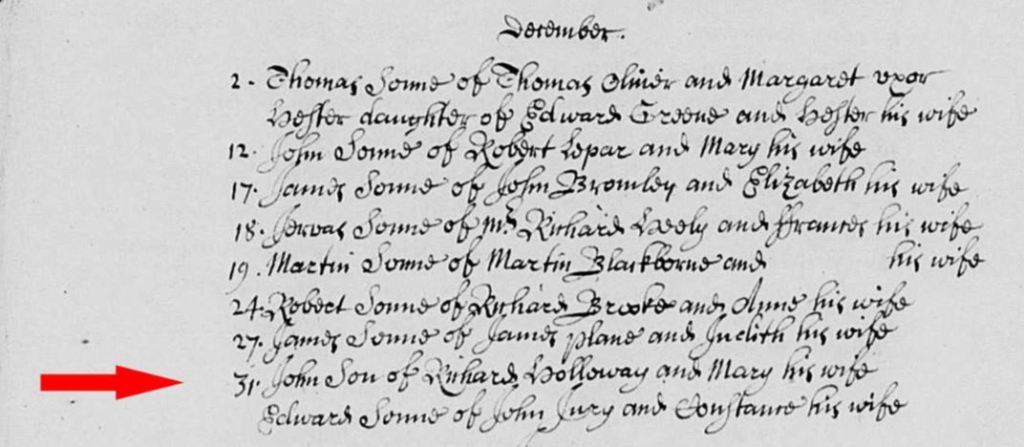 December.
2. Thomas Sonne of Thomas Oliuer and Margaret vxor
Hester daughter of Edward Greene and Hester his wife
12. John Sonne of Robert Lepar and Mary his wife
17. James Sonne of John Bromley and Elizabeth his wife
18. Jervas Sonne of Mr Richard and ffrances his wife
19. Martin Sonne of Martin Blackborne and his wife
24. Robert Sonne of Richard Brooke and Anne his wife
27. James Sonne of James plane and Judith his wife
31. John Son of Richard Holloway and Mary his wife
Edward Sonne of John Jury and Constance his wife